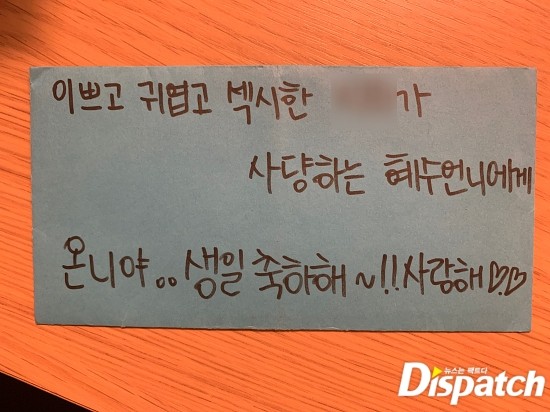 이쁘고 귀엽고 섹시한 가
사댱하는 혜수언니에게
온니야.. 생일 축하해~!!사랑해♡♡
뉴스는 팩트다
Dispatch